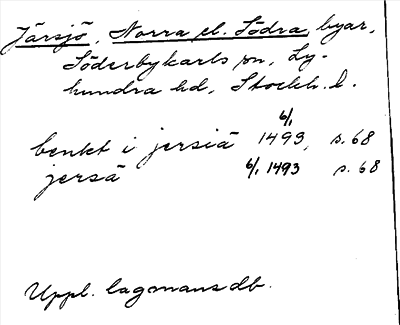 Järsjö, Norra el. Södra byar,
Söderbykarls sn, Ly-
hundra hd, Stockh. l.
benkt i jersiä 6/1 1493, s. 68
jersä 6/1 1493 s. 68
Uppl. lagmansdb.